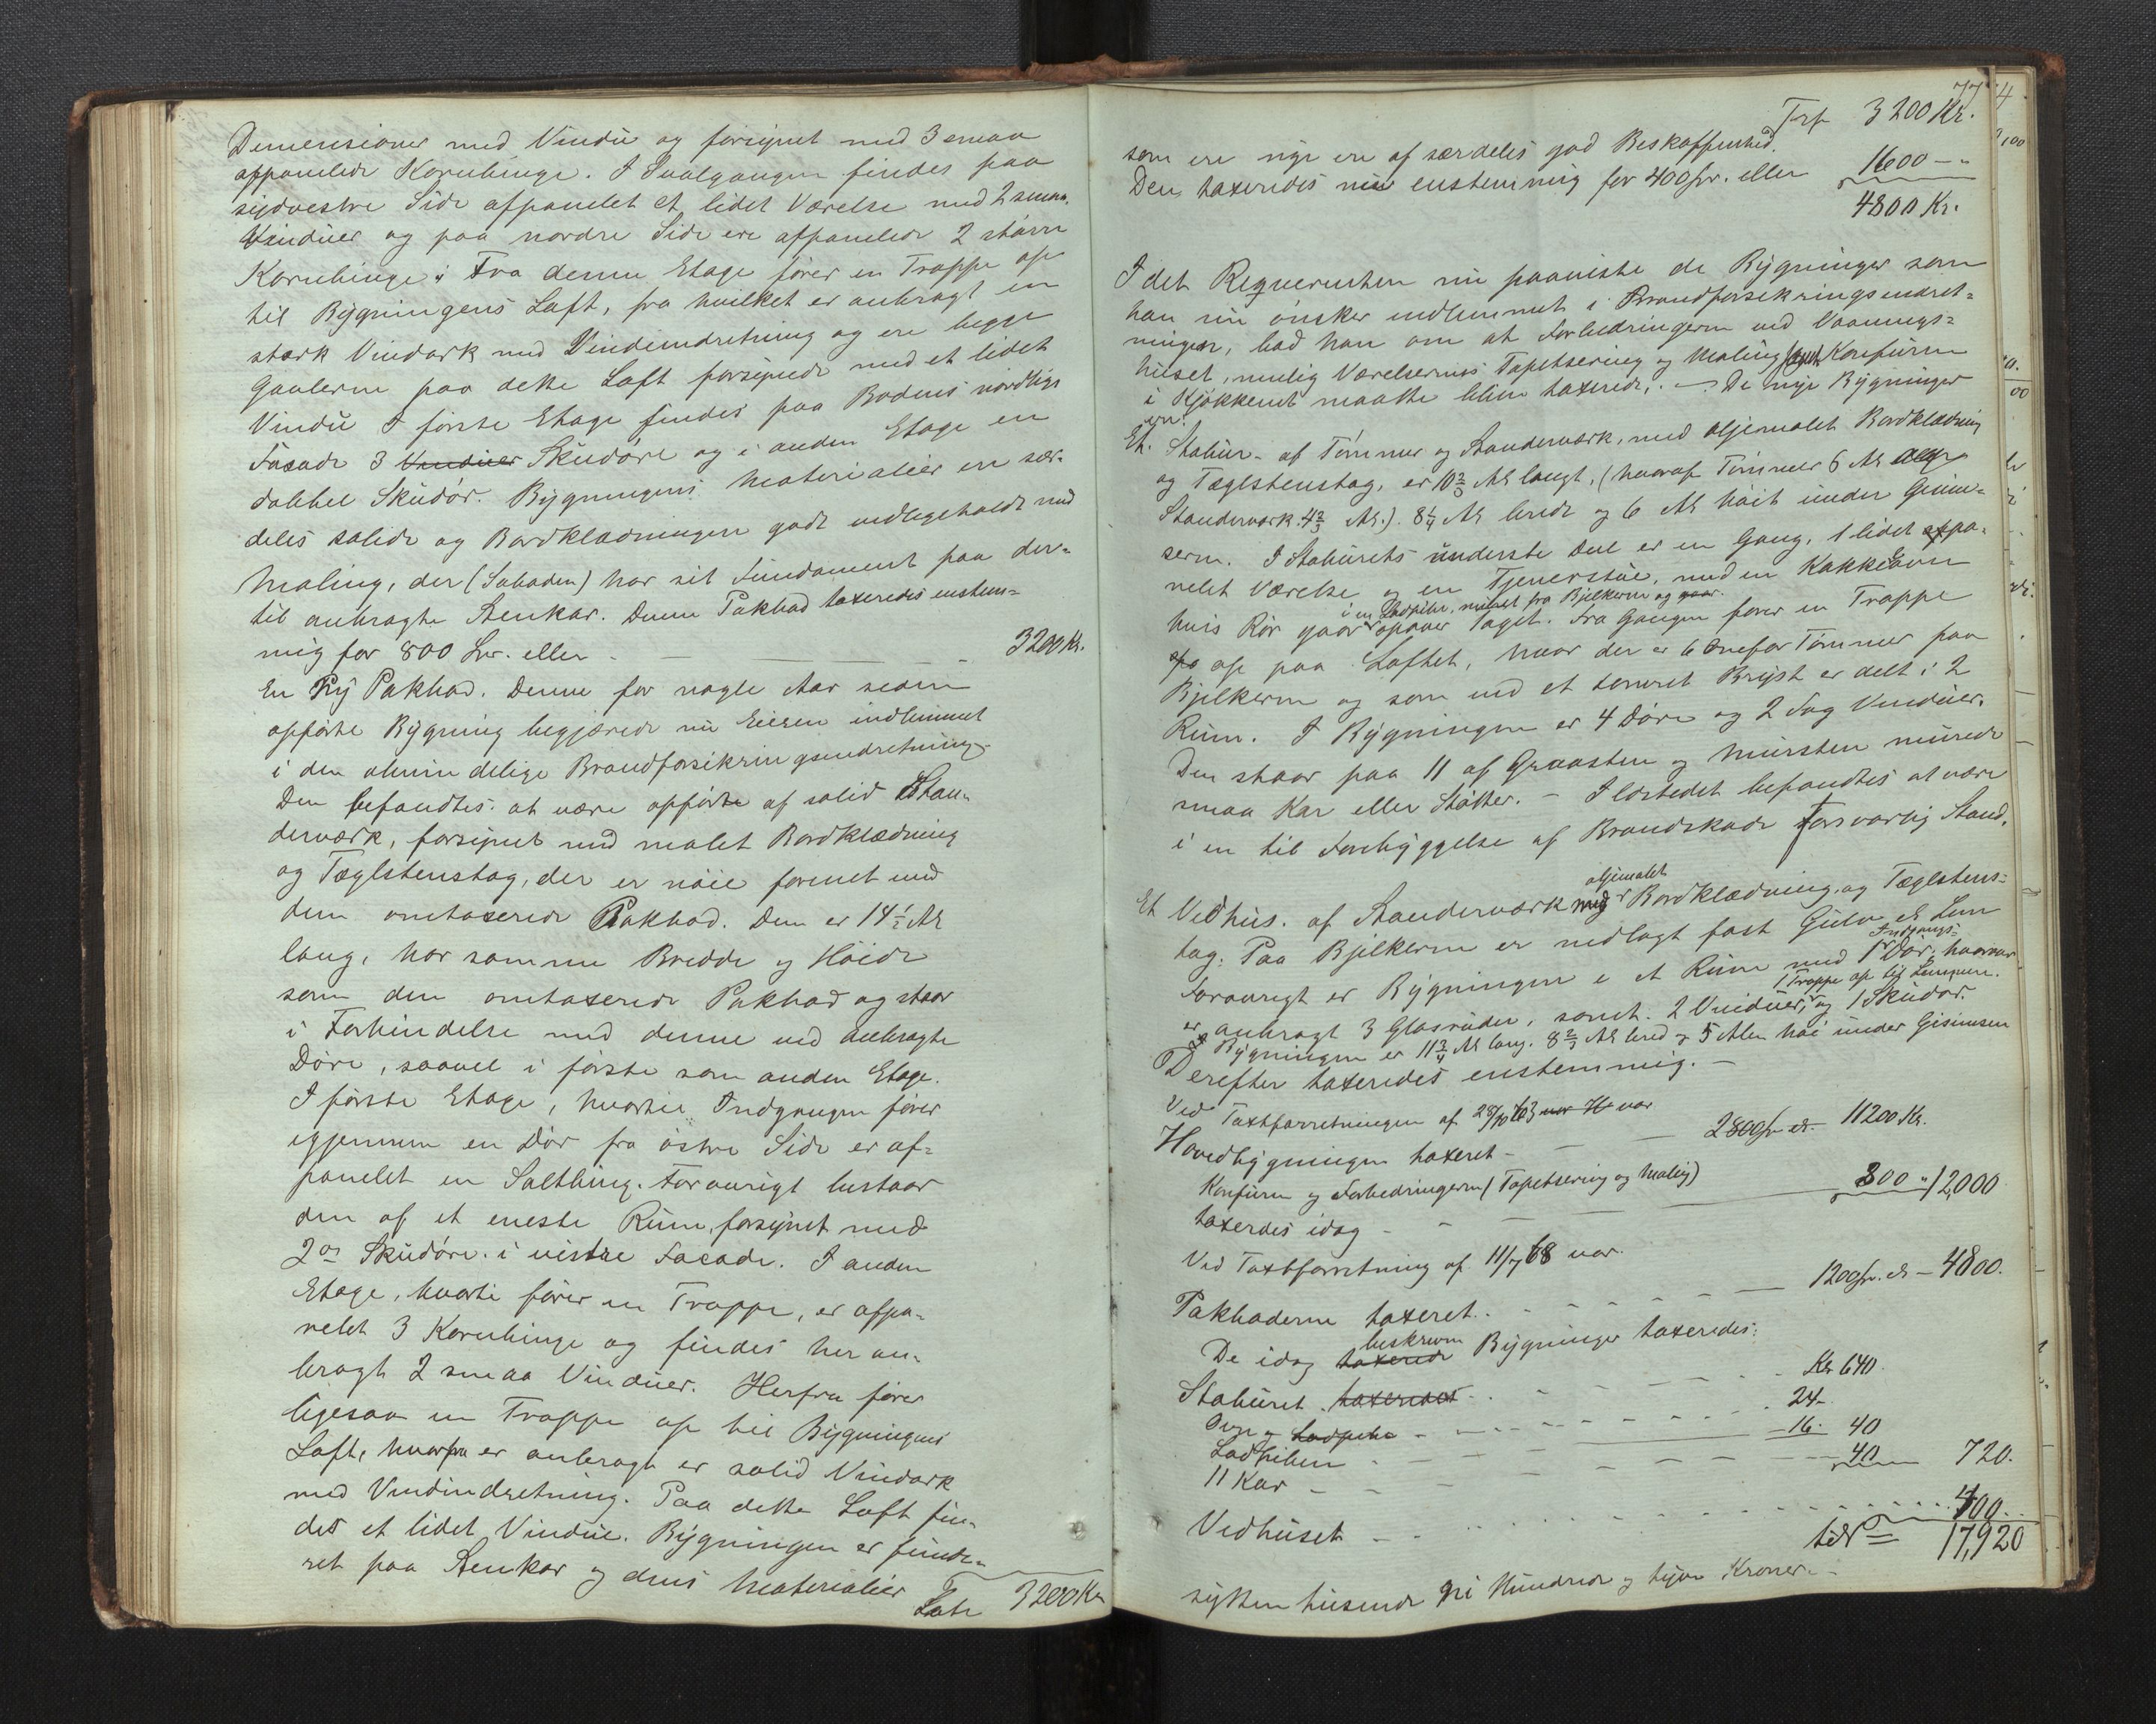 Dimensioner med Vindu og forsynet med 3 smaa
afpanelede Kornbinge. I Svalgangen findes paa
sydvestre Side afpanelet et lidet Værelse med 2 smaa
Vinduer og paa nordre Side ere afpanelede 2 større
Kornbinge. Fra denne Etage fører en Trappe op
til Bygningens Loft, fra hvilket er anbragt en
stærk Vindark med Vindeindretning og ere begge
Gavlerne paa dette Loft forsynede med et lidet
Vindu I første Etage findes paa Bodens nordlige
Facade 3 Vinduer Skudøre og i anden Etage en
dobbel Skudør. Bygningens Materialier ere sær-
deles solide og Bordklædningen godt vedligeholdt med
Maling, der (Søboden) har sit Fundament paa der-
til anbragte Stenkar. Denne Pakbod taxeredes enstem-
mig for 800 Spr. eller - 3200 Kr.
En Ny Pakbod. Denne for nogle Aar siden
opførte Bygning begjærede nu Eieren indlemmet
i den almindelige Brandforsikringsindretning.
Den befandtes at være opførte af solid Stan-
derværk, forsynet med malet Bordklædning
og Tæglstenstag, der er nøie forenet med
den omtaxerede Pakbod. Den er 14½ Al
lang, har samme Bredde og Høide
som den omtaxerede Pakbod og staar
i Forbindelse med denne ved anbragte
Døre, saavel i første som anden Etage.
I første Etage, hvortil Indgangen fører
igjennem en Dør fra østre Side er af-
panelet en Saltbing. Forøvrigt bestaar
den af et eneste Rum, forsynet med
2de Skudøre i vistre Facade. I anden
Etage, hvortil fører en Trappe, er afpa-
nelet 3 Kornbinge og findes her an-
bragt 2 smaa Vinduer. Herfra fører
ligesaa en Trappe op til Bygningens
Loft, hvorfra er anbragt er solid Vindark
med Vindindretning. Paa dette Loft fin-
des et lidet Vindue. Bygningen er funde-
ret paa Stenkar og dens Materialier
Late 3200 Kr
77
Trsp 3200 Kr.
som ere nye ere af særdeles god Beskaffenhed.
Den taxeredes nu enstemmig for 400 Spr. eller 1600 - "
4800 Kr.
I det Reqvirenten nu paaviste de Bygninger som
han nu ønsker indlemmet i Brandforsikringsindret-
ningen, bad han om at Forbedringerne ved Vaanings-
huset, nemlig Værelsernes Tapetsering og Maling samt Komfuren
i Kjøkkenet maatte blive taxerede. - De nye Bygninger
ere:
Et Stabur - af Tømmer og Standerværk, med oljemalet Bordklædning
og Tæglstenstag, er 10⅔ Al langt, (hvoraf Tømmer 6 Al
Standerværk 4⅔ Al.). 8¼ Al bredt og 6 Al høit under Gesim-
serne. I Staburets underste Deel er en Gang, 1 lidet afpa-
nelet Værelse og en Tjenerstue, med en Kakkelovn
i en Ladpibe, muret fra Bjelkerne og
hvis Rør gaar opover Taget. Fra Gangen fører en Trappe
op paa Loftet, hvor der er 6 Omfar Tømmer paa
Bjelkerne og som ved et tømret Bryst er delt i 2
Rum. I Bygningen er 4 Døre og 2 Fag Vinduer.
Den staar paa 11 af Graasten og Mursten murede
smaa Kar eller Støtter. - Ildstedet befandtes at være
i en til Forebyggelse af Brandskade forsvarlig Stand.
oljemalet
Et Vedhus. af Standerværk med Bordklædning og Tæglstens-
tag. Paa Bjelkerne er nedlagt fast Gulv et Lem
Indgangs-
Forøvrigt er Bygningen i et Rum med 1 Dør, hvorover
1 Trappe op til Lemmen.
er anbragt 3 Glasruder, samt. 2 Vinduer, og 1 Skudør.
Bygningen er 11¾ Al lang. 8⅔ Al bred og 5 Alen høi under Gisimsen
Derefter taxeredes enstemmig. -
Ved Taxtforretningen af 28/10 63 var
Hovedbygningen taxeret - 2800 Spr er 11200 Kr.
Komfuren og Forbedringerne (Tapetsering og Maling)
taxerdes idag - 800 " 12,000
Ved Taxtforretning af 11/7 68 var.
Pakboderne taxeret. 1200 Spr. er - 4800.
beskrevne
De idag taxerede Bygninger taxeredes:
Staburet taxeredes Kr 640.
Ovn - Ladpibe 24
Ladpiben 16 - 40
11 Kar 40 720.
Vedhuset 400
tils = 17,920
sytten tusinde ni Hundrede og tyve Kroner. -